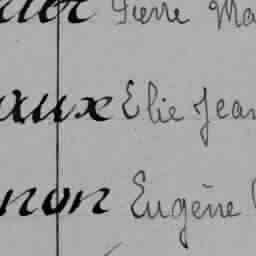 Pierre Ma
aux Elie Jean
non Eugène